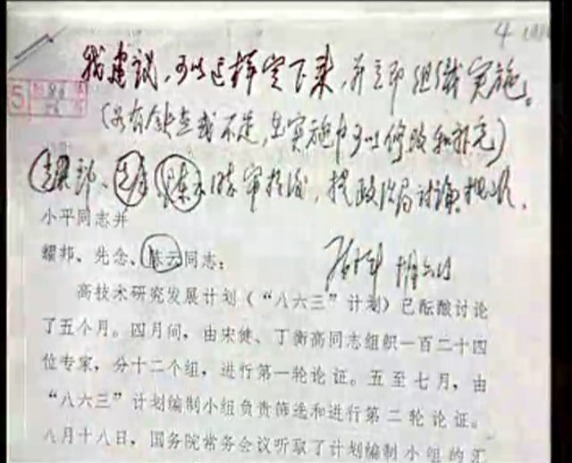 4
我建议，可以这样定下来，并立即组织实施。
（如有缺点或不足，在实施中可以修改和补充）
耀邦、先念、陈云同志审批后，提政治局讨论批准。
小平同志并
耀邦、先念、陈云同志：
高技术研究发展计划（“八六三”计划）已酝酿讨论
了五个月。四月间，由宋健、丁衡高同志组织一百二十四
位专家，分十二个组，进行第一轮论证。五至七月，由
“八六三”计划编制小组负责筛选和进行第二轮论证。
八月十八日，国务院常务会议听取了计划编制小组的汇